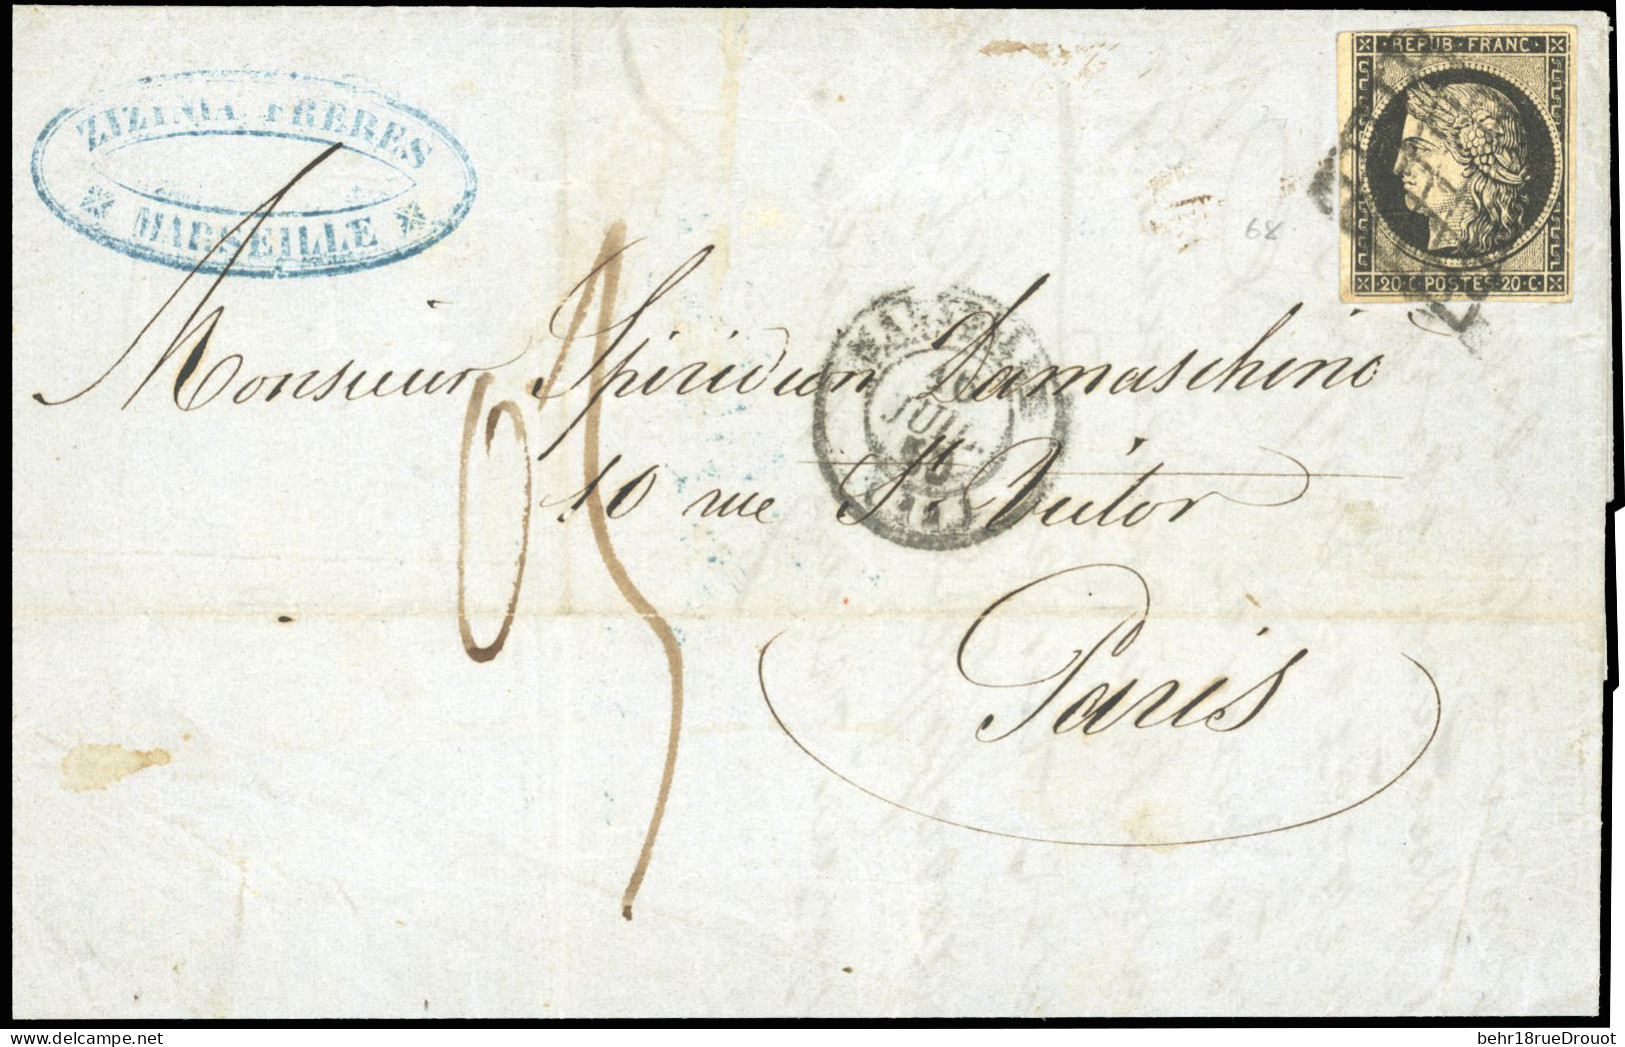 ZIZINIA FRERES
MARSEILLE
REPUB·FRANC
20·C·POSTES·20·C
68
MARSEILLE
JUIL.
50
Monsieur Spiridion Damaschino
10 rue St Victor
Paris
behr18rueDrouot